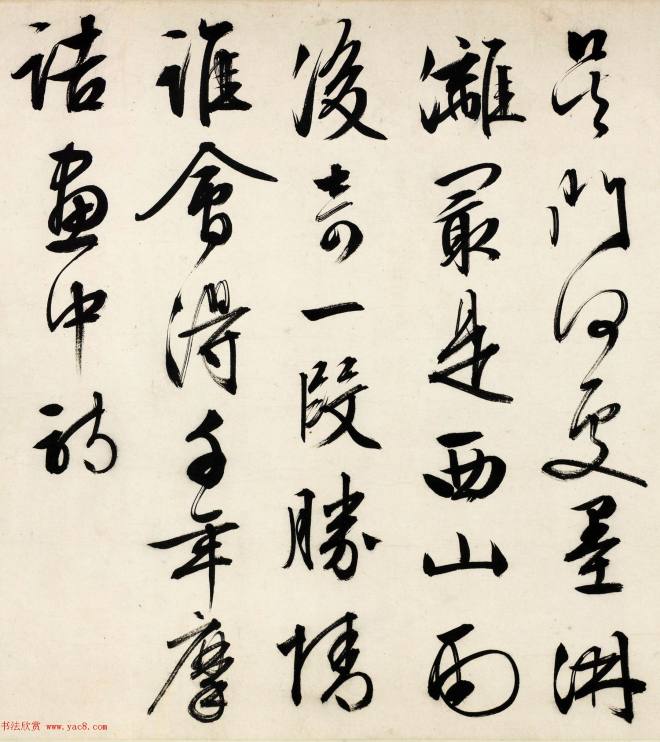 吴门何处墨淋
漓最是西山雨
後奇一段勝情
誰會得千年摩
詰畫中詩
书法欣赏 www.yac8.com